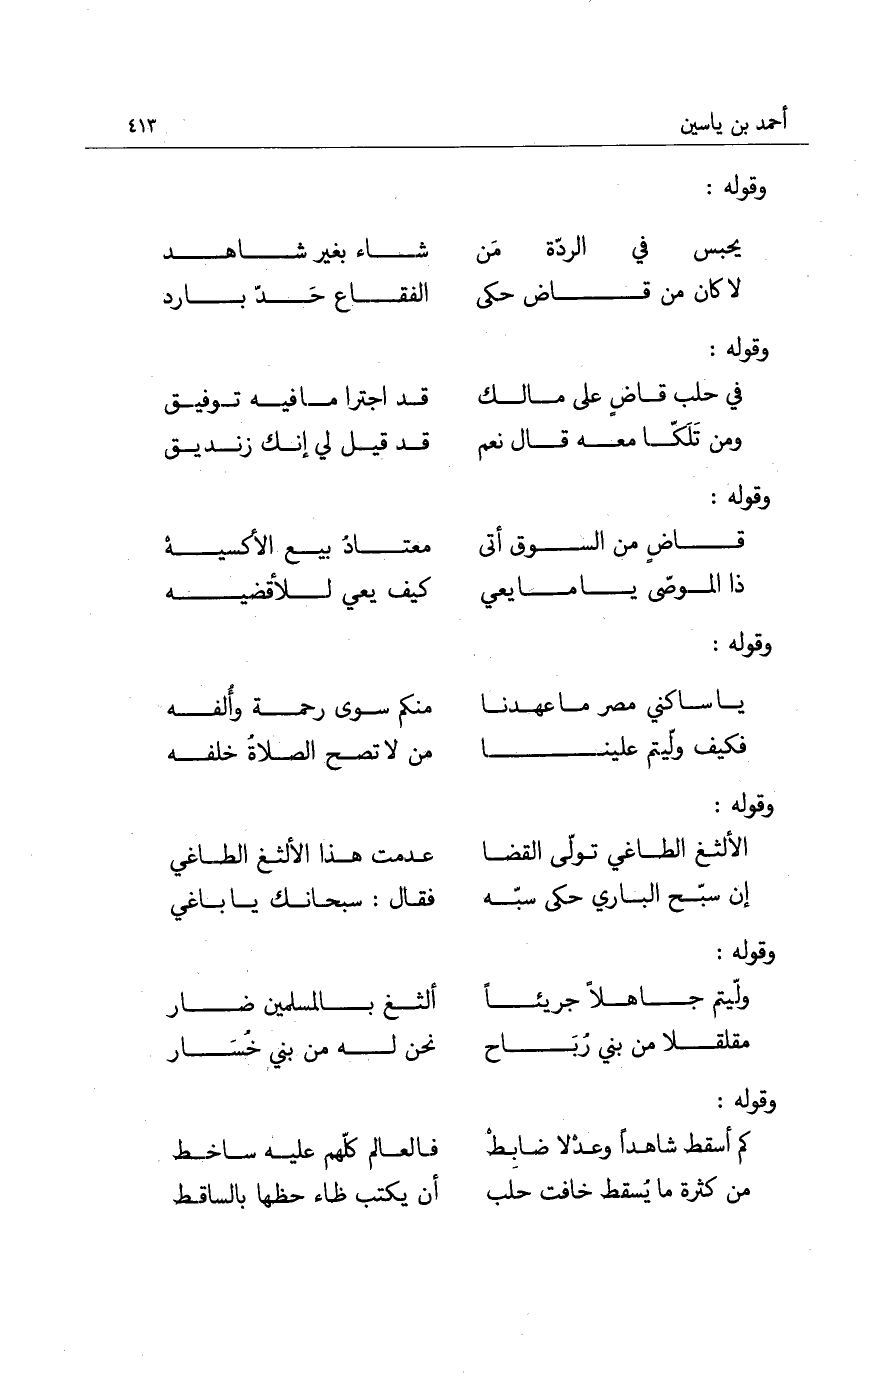 أحمد بن ياسين ٤١٣
وقوله :
يحبس في الردّة مَن شاء بغير شاهد
لا كان من قاض حكى الفقاع حَدّ بارد
وقوله :
في حلب قاضٍ على مالك قد اجترا مافيه توفيق
ومن تَلَكّا معه قال نعم قد قيل لي إنك زنديق
وقوله :
قاضٍ من السوق أتى معتادُ بيع الأكسيهْ
ذا الموصّى يامايعي كيف يعي للأقضيه
وقوله :
ياساكني مصر ماعهدنا منكم سوى رحمة وأُلفه
فكيف ولّيتم علينا من لا تصح الصلاةُ خلفه
وقوله :
الألثغ الطاغي تولّى القضا عدمت هذا الألثغ الطاغي
إن سبّح الباري حكى سبّه فقال : سبحانك ياباغي
وقوله :
ولّيتم جاهلاً جريئاً ألثغ بالمسلمين ضار
مقلقلا من بني رُبَاح نحن له من بني خُسَار
وقوله :
كم أسقط شاهداً وعدْلا ضابِطْ فالعالم كلّهم عليه ساخط
من كثرة ما يُسقط خافت حلب أن يكتب ظاء حظها بالساقط